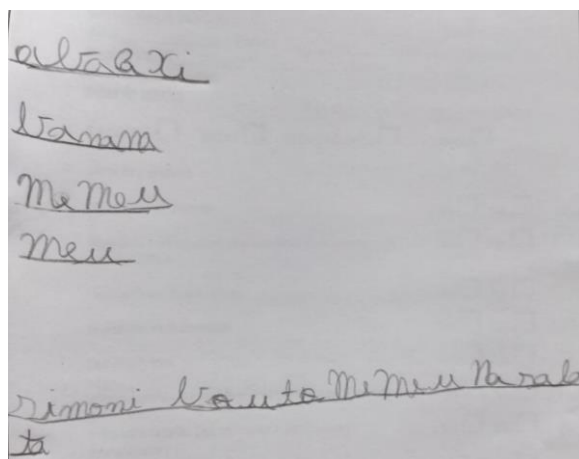 abaaxi
banana
memeu
meu
simoni bouta memeu na sala
ta